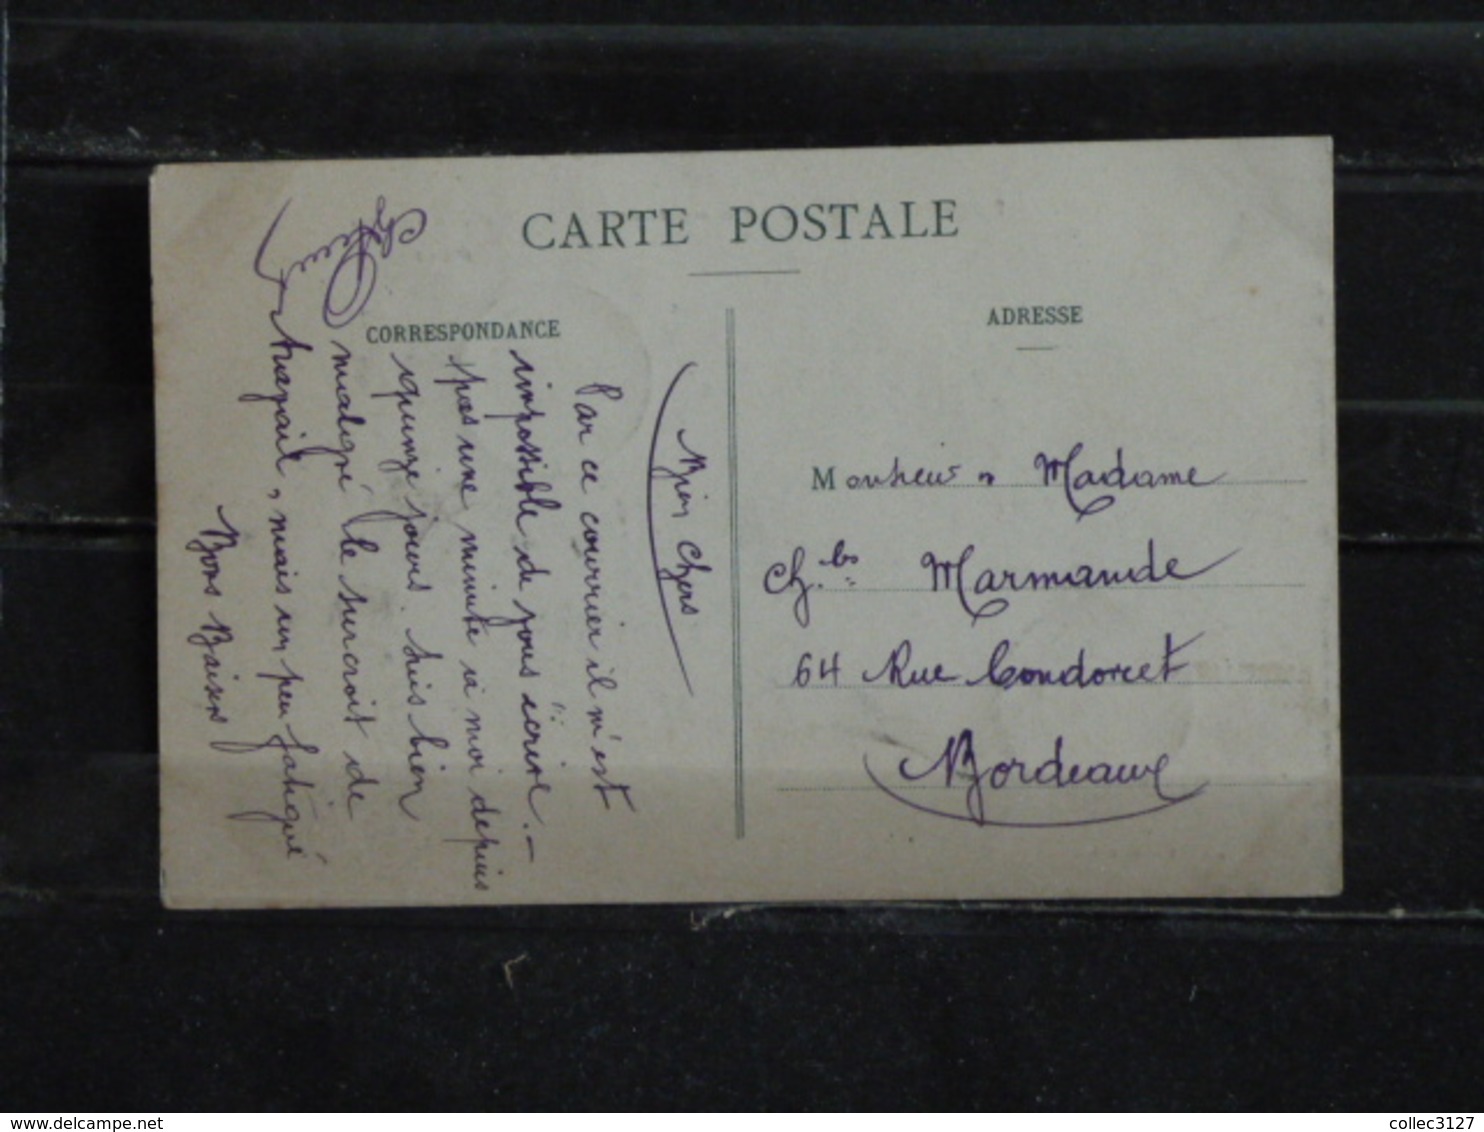 CARTE POSTALE
CORRESPONDANCE
Bien Chers
Par ce courrier il m'est
impossible de vous écrire. -
pas une minute à moi depuis
quinze jours. Suis bien
malgré le surcroit de
travail, mais un peu fatigué
Bons Baisers
ADRESSE
Monsieur & Madame
Ch.les Marmande
64 Rue Condorcet
Bordeaux
collec3127